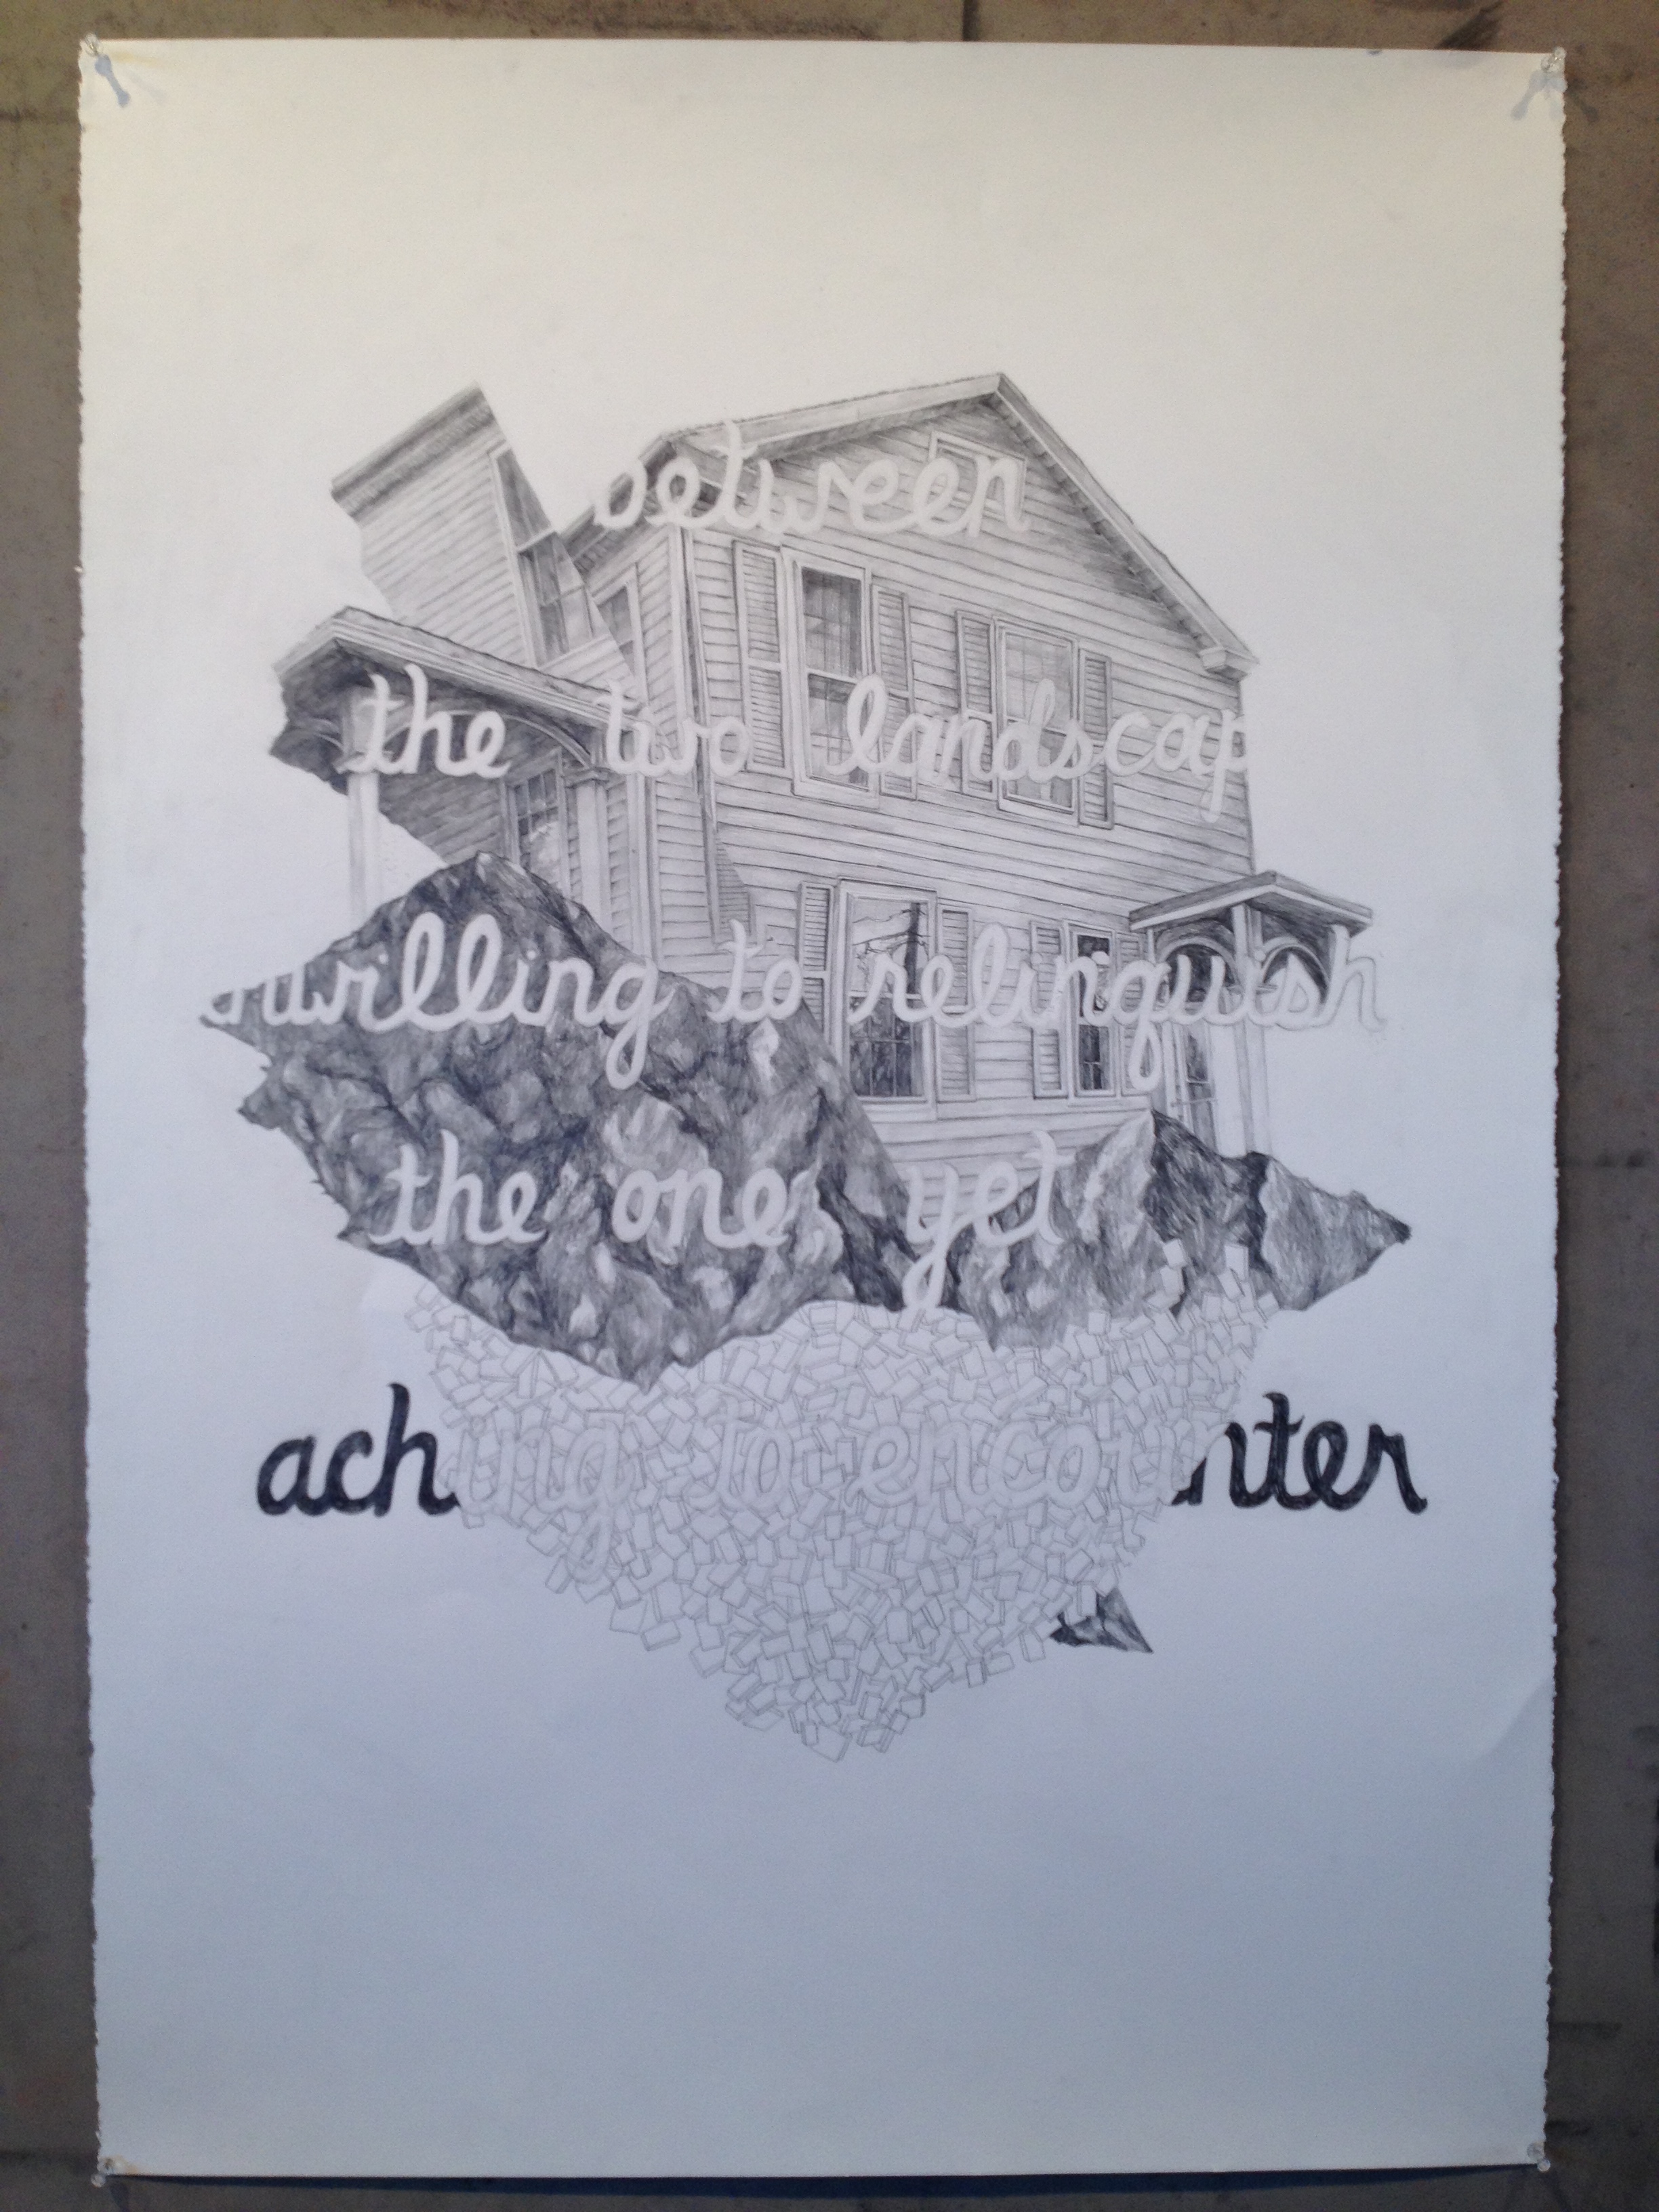 between
the two landscap
nwilling to relinquish
the one yet
aching to encounter